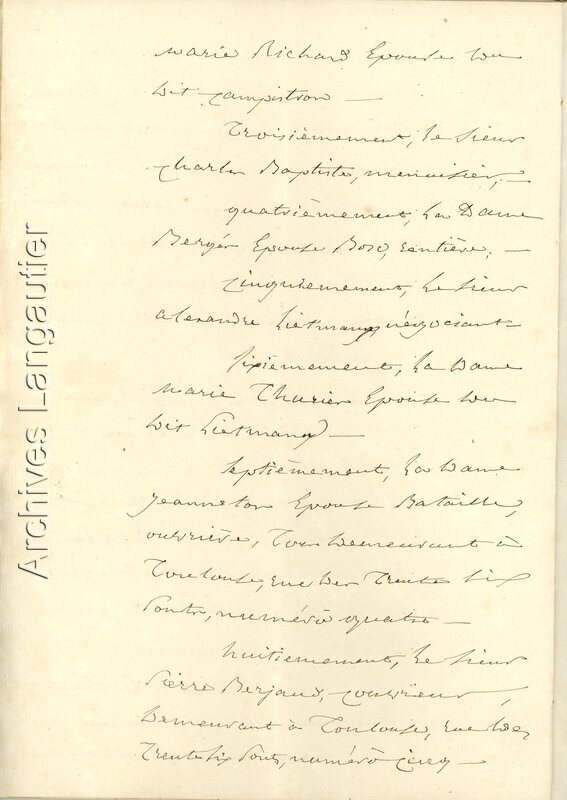 Marie Richard Epouse du
dit Campistron —
Troisièmement, le sieur
Charles Baptiste, menuisier, —
quatrièmement, la Dame
Berger Epouse Bosc, rentière, —
Cinquiemement, le sieur
alexandre Lietmany négociant —
sixièmement, la dame
Marie Thurier Epouse du
dit Lietmany —
septièmement, la dame
Jeanneton Epouse Bataille,
ouvrière, Tous demeurant à
Toulouse, rue des Trente six
Ponts, numéro quatre —
huitiemement, le sieur
Pierre Berjaud, couvreur,
demeurant à Toulouse, rue des
Trente six Ponts, numéro cinq —
Archives Langautier